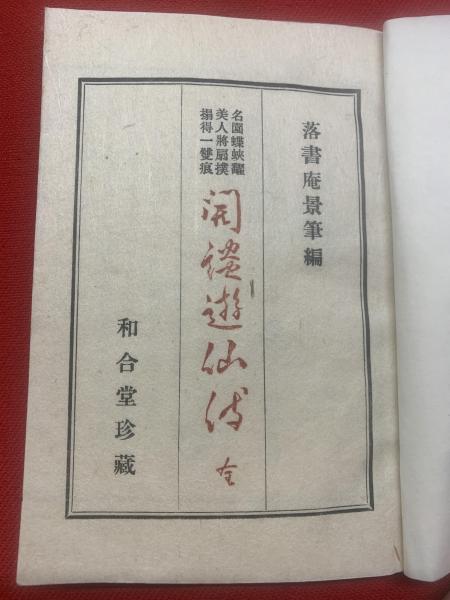 落書庵景筆編
名園蝶蛺飜
美人將扇撲
搨得一雙痕
開遊仙傳 全
和合堂珍藏